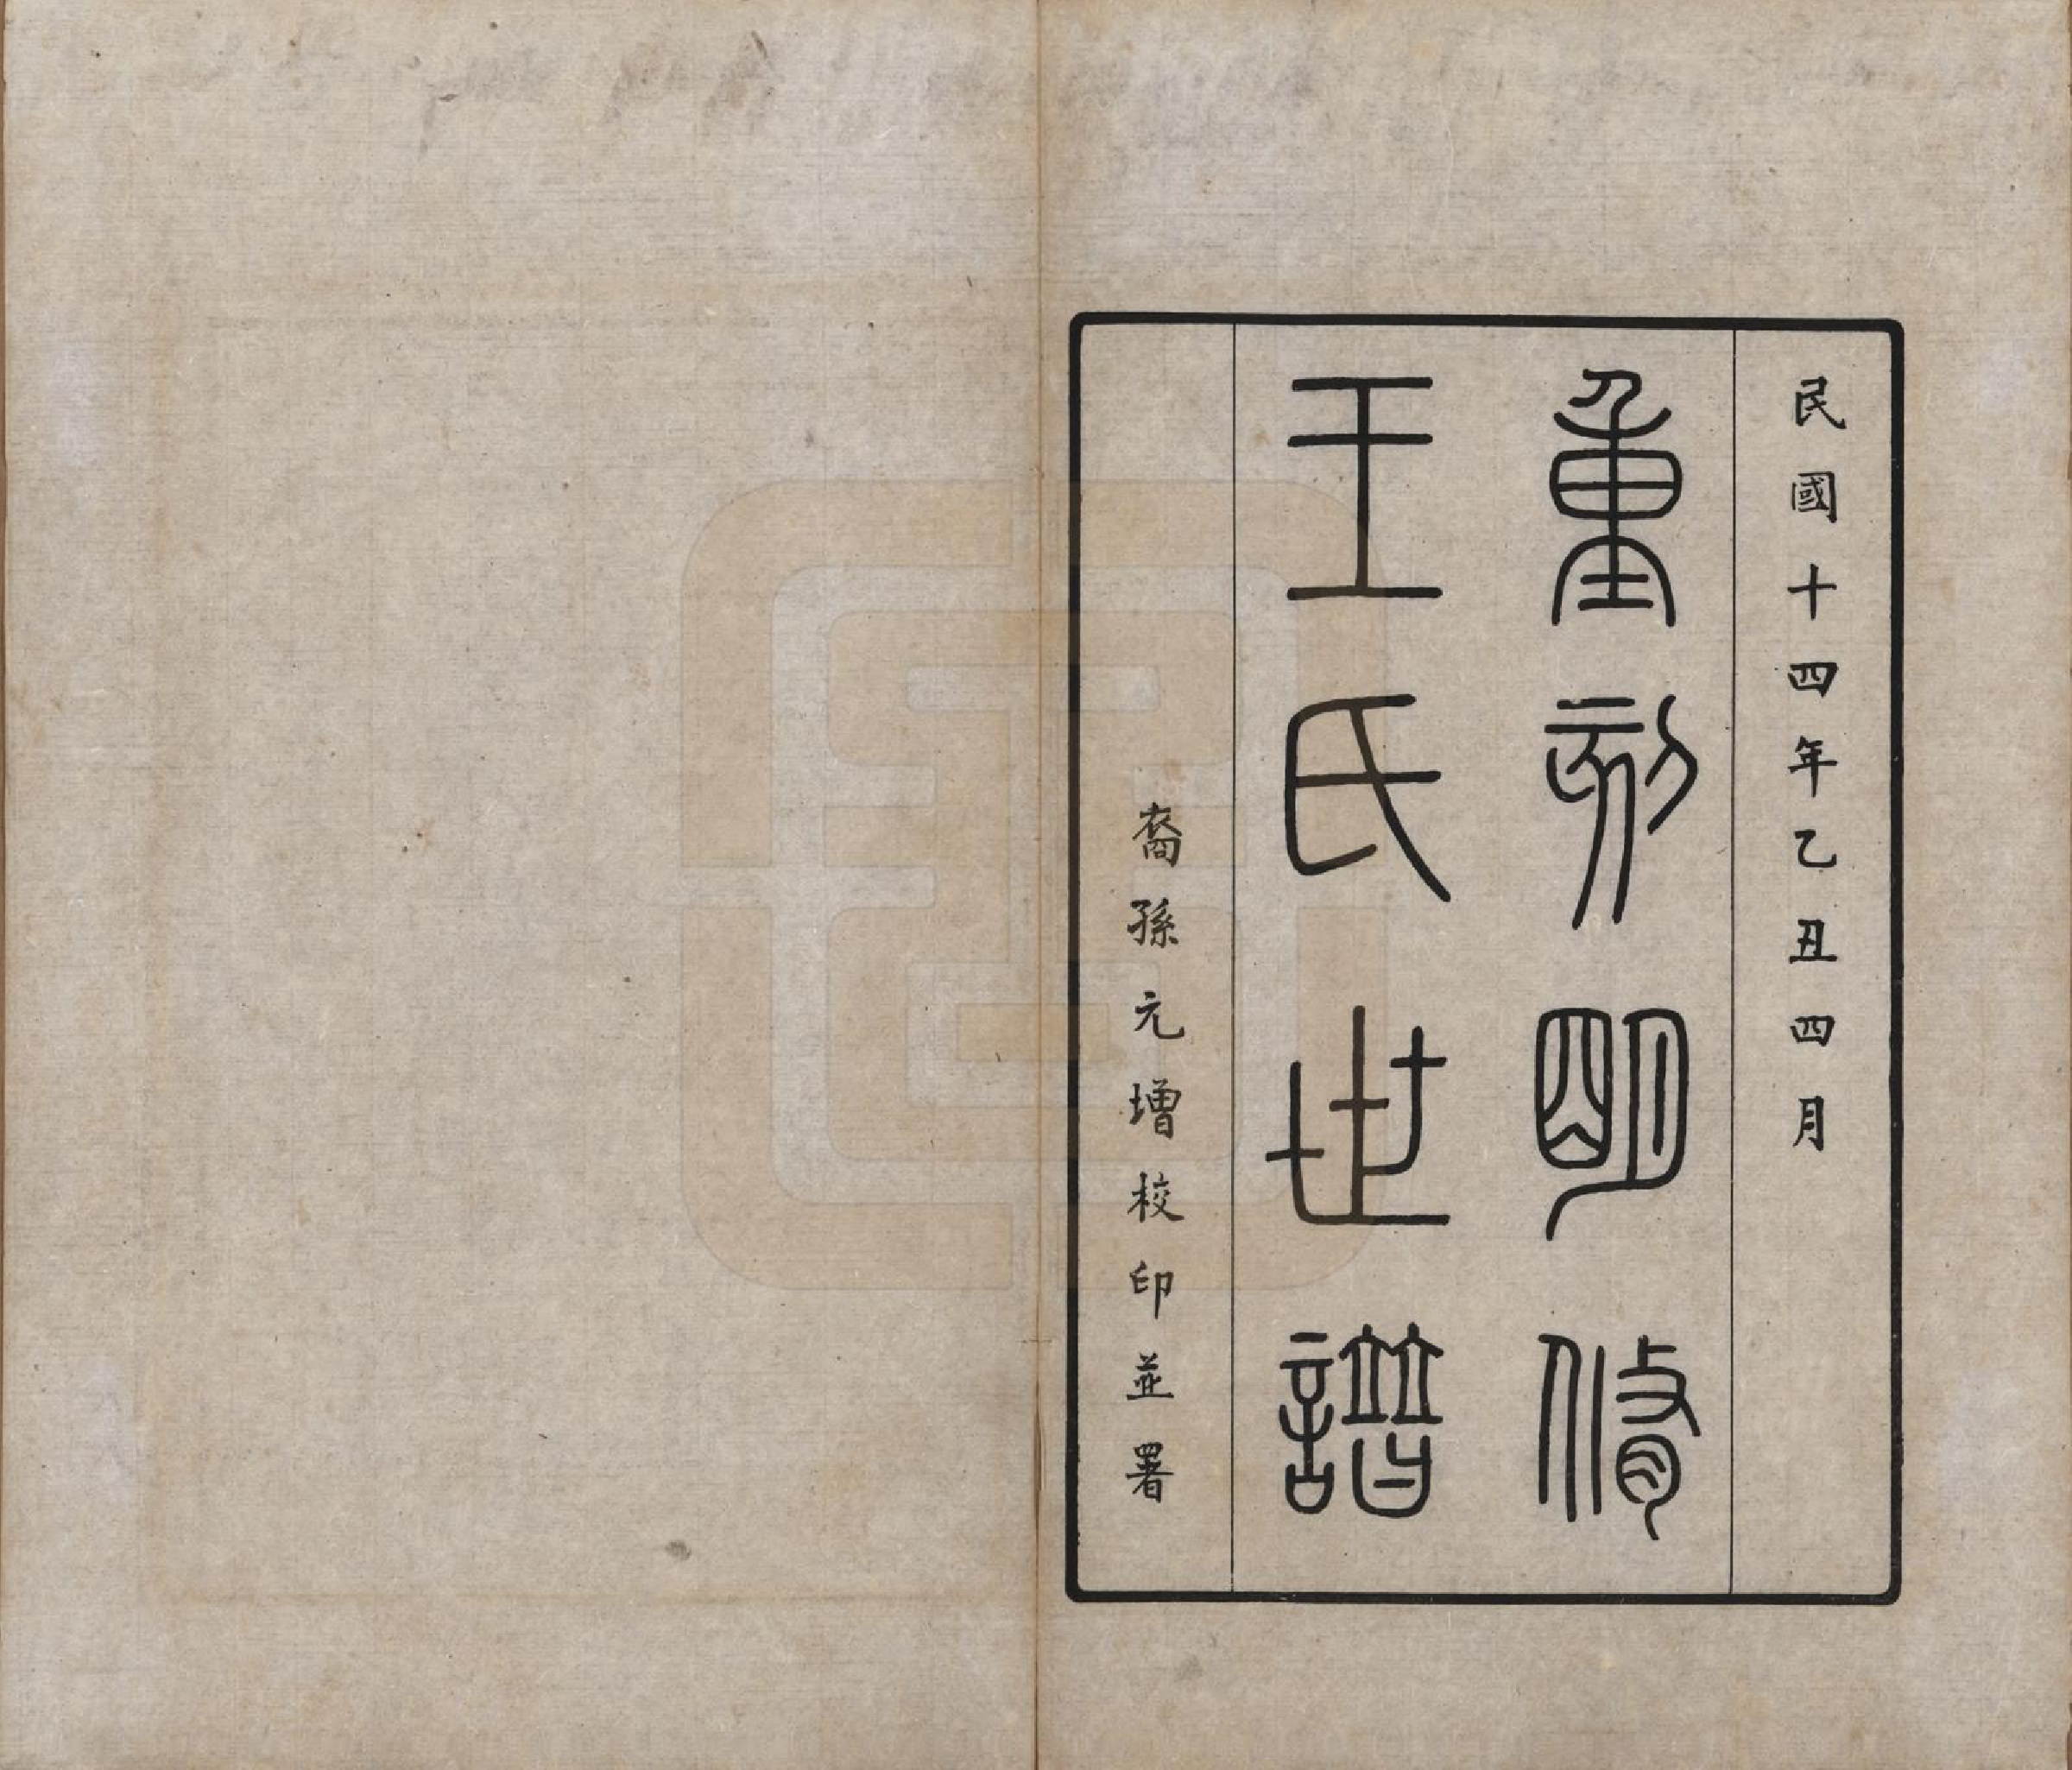 民國十四年乙丑四月
重刻明修
王氏世譜
裔孫元增校印並署